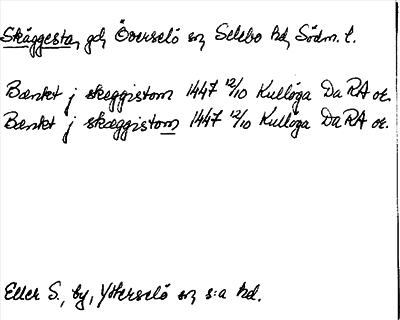 Skäggesta, gd, Överselö sn, Selebo hd, Södm. l.
Benkt j skeggistom 1447 12/10 Kulloga Da RA or.
Benkt j skæggistom 1447 12/10 Kulloga Da RA or.
Eller S., by, Ytterselö sn, s:a hd.